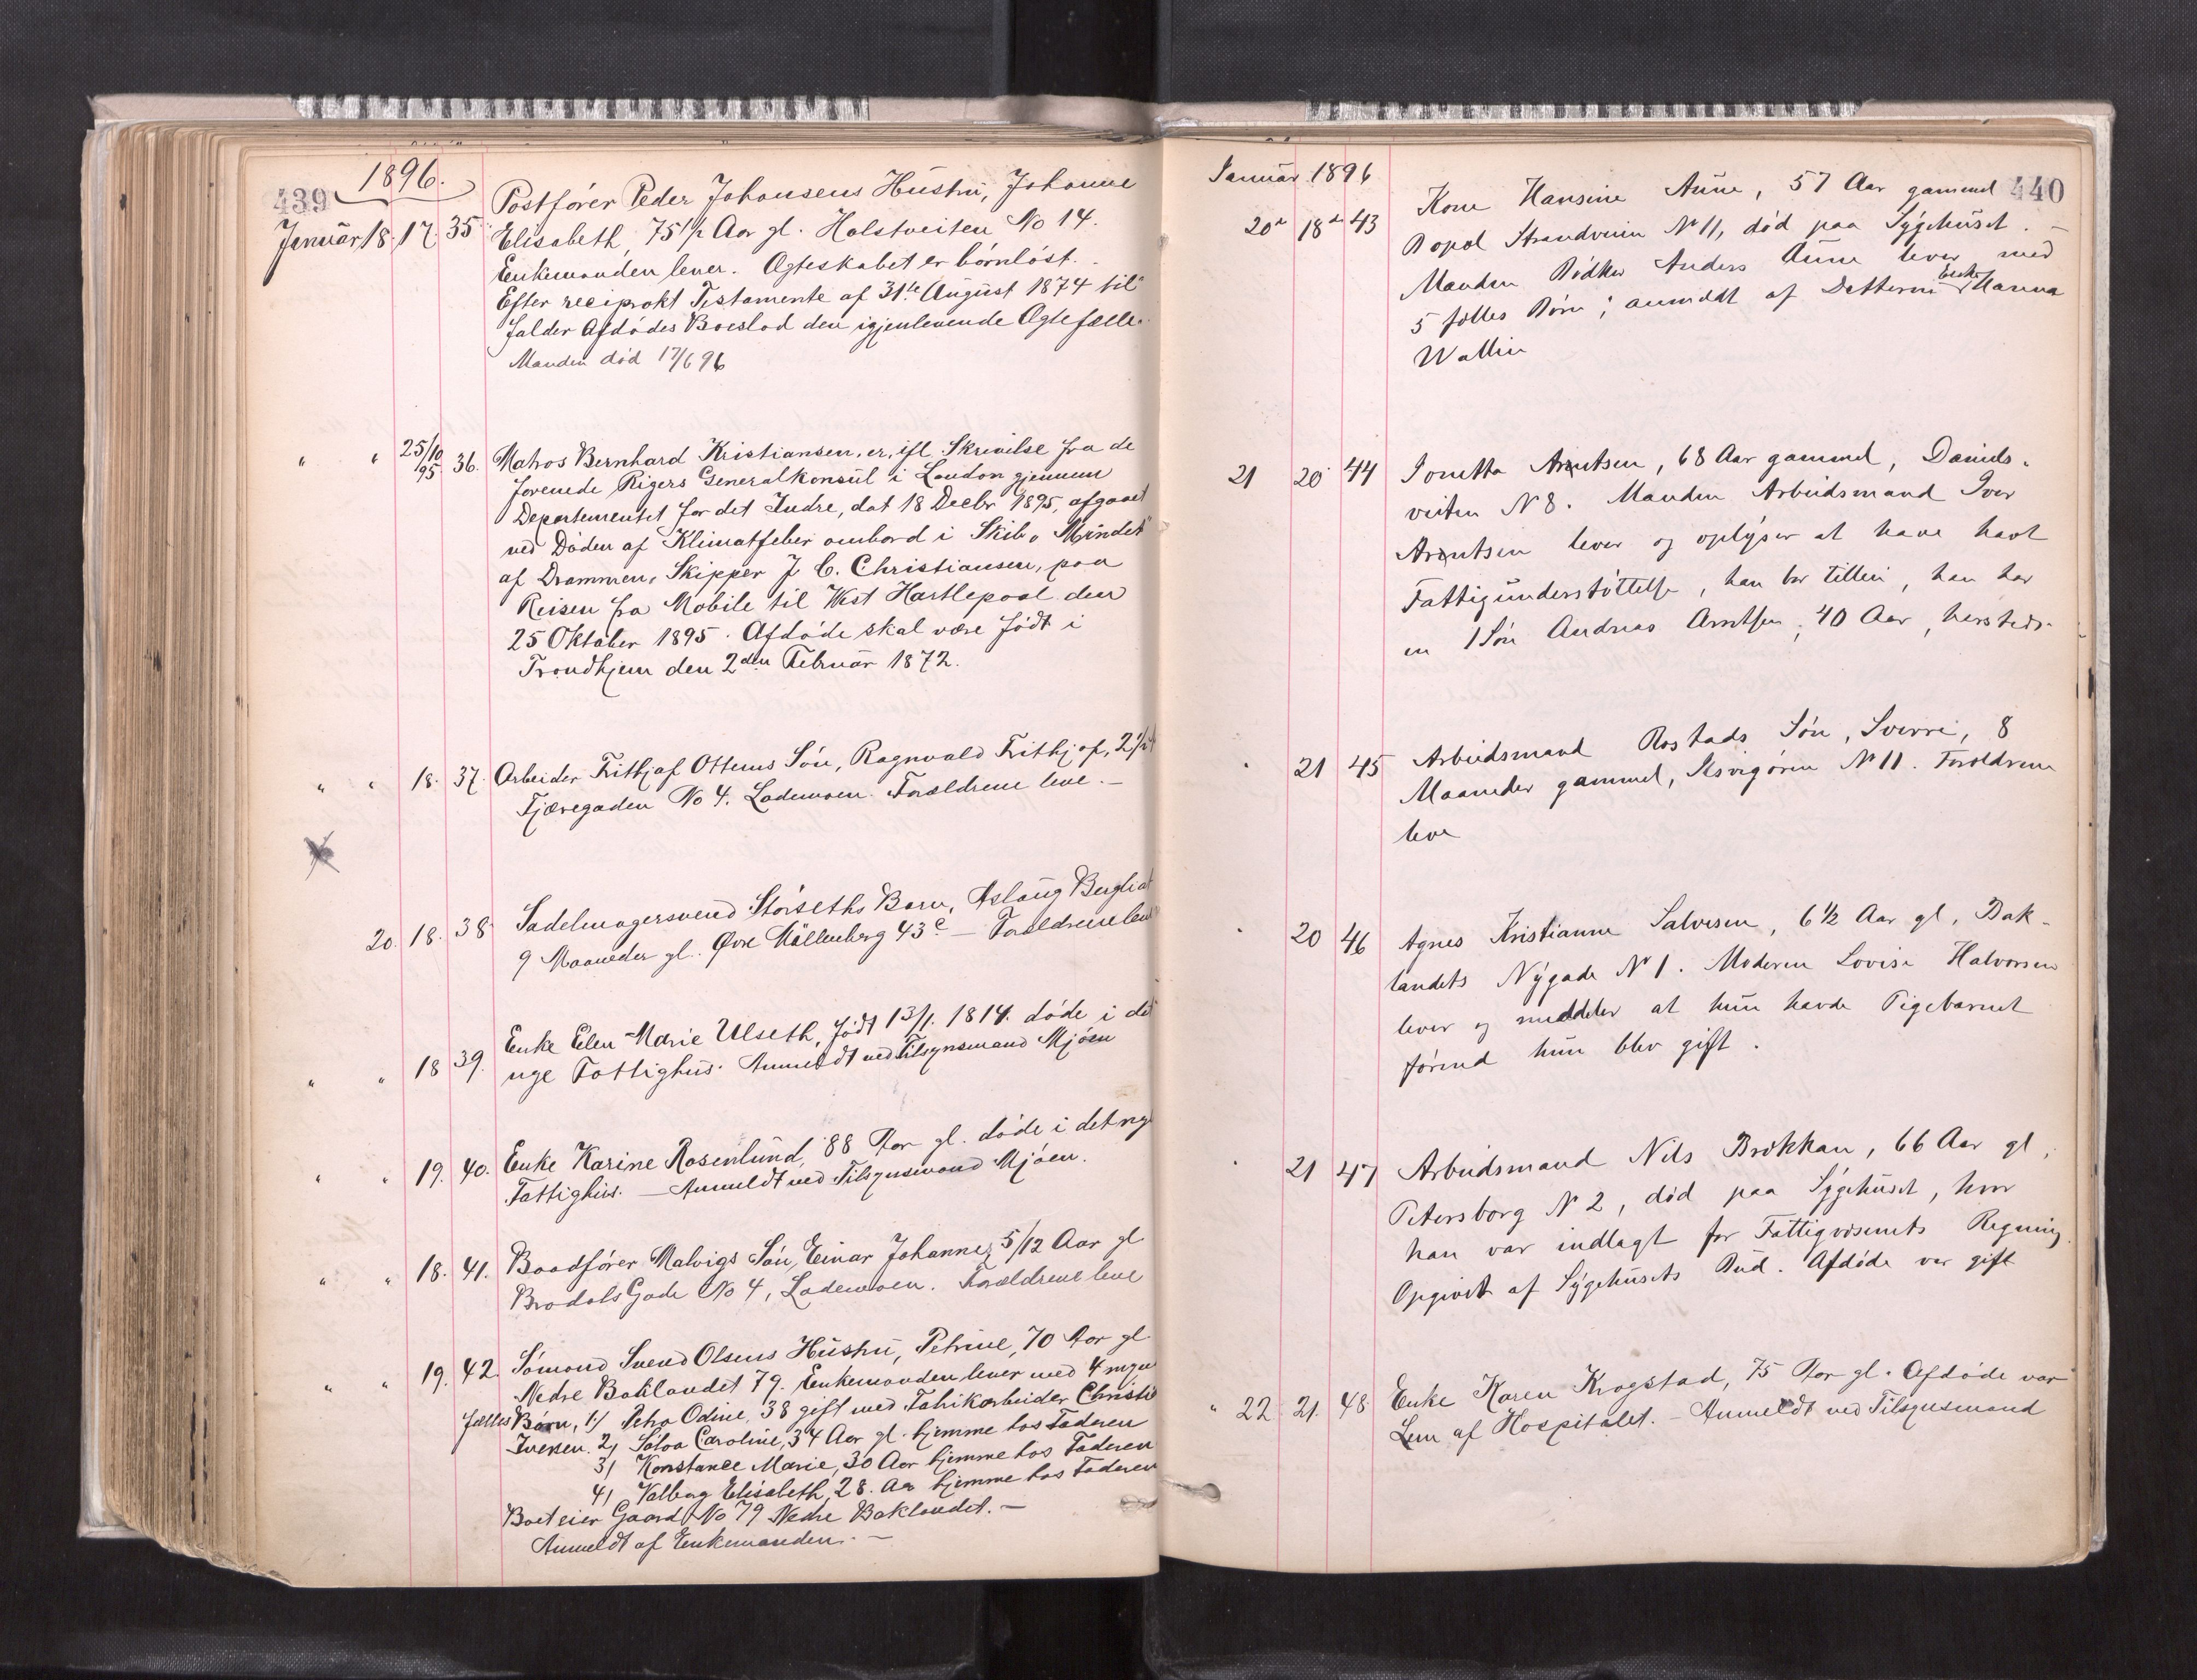 439
1896.
Januar 18. 17. 35. Postfører Peder Johansens Hustru, Johanne
Elisabeth, 75 1/2 Aar gl. Holstveiten No 14.
Enkemanden lever. Ægteskabet er børnløst.
Efter reciprokt Testamente af 31te August 1874 til-
falder Afdødes Boeslod den igjenlevende Ægtefælle.
Manden død 17/6 96
" " 25/10 95 36. Matros Bernhard Kristiansen, er, ifl. Skrivelse fra de
forenede Rigers Generalkonsul i London gjennem
Departementet for det Indre, dat 18 Decbr 1895, afgaaet
ved Døden af Klimatfeber ombord i Skib "Mindet"
af Drammen, Skipper J. C. Christiansen, paa
Reisen fra Mobile til West Hartlepool den
25 Oktober 1895. Afdøde skal være født i
Trondhjem den 2den Februar 1872.
" " 18. 37. Arbeider Frithjof Ottems Søn, Ragnvald Frithjof, 2 1/2
Tjæregaden No 4. Lademoen. Forældrene leve.—
20. 18. 38 Sadelmagersvend Storseths Barn, Aslaug Bergliot
9 Maaneder gl. Øvre Møllenberg 43c — Forældrene leve
" " 18 39. Enke Elen Marie Ulseth, født 13/1. 1814. døde i det
nye Fattighus. Anmeldt ved Tilsynsmand Mjøen
" " 19. 40. Enke Karine Rosenlund, 88 Aar gl. døde i det nye
Fattighus. — Anmeldt ved Tilsynsmand Mjøen.
" " 18. 41. Baadfører Malvigs Søn, Einar Johannes, 5/12 Aar gl
Brodals Gade No 4, Lademoen. Forældrene leve
" " 19. 42. Sømand Svend Olsens Hustru, Petrine, 70 Aar gl.
Nedre Baklandet 79. Enkemanden lever med 4 myn
fælles Børn, 1/ Petra Odine, 38 gift med Fabrikarbeider Christi
Iversen. 2/ Caroline, 34 Aar gl. hjemme hos Faderen
3/ Konstance Marie, 30 Aar hjemme hos Faderen
4/ Valborg Elisabeth, 28. Aar hjemme hos Faderen
Boet eier Gaard No 79 Nedre Baklandet.—
Anmeldt af Enkemanden.—
440
Januar 1896
20 18 43 Kone Hansine Aune, 57 Aar gammel
Bopæl Strandveien No 11, død paa Sygehuset.—
Manden Bødker Anders Aune lever med
5 fælles Børn; anmeldt af Datteren Enke Hanna
Wallin
21 20 44 Jonetta Arntsen, 68 Aar gammel, Daniels-
veiten N 8. Manden Arbeidsmand Iver
Arntsen lever og oplyser at have havt
Fattigunderstøttelse, han bor tilleie, han har
en 1 Søn Andreas Arntsen, 40 Aar, hersteds.
" 21 45 Arbeidsmand Rostads Søn, Sverre, 8
Maaneder gammel, Ilsvigøren No 11. Forældrene
leve
" 20 46 Agnes Kristianne Salvesen, 6 1/2 Aar gl, Bak-
landets Nygade No 1. Moderen Lovise Halvorsen
lever og meddeler at hun havde Pigebarnet
førend hun blev gift.
" 21 47 Arbeidsmand Nils Brøkkan, 66 Aar gl,
Petersborg No 2, død paa Sygehuset, hvor
han var indlagt for Fattigvæsenets Regning.
Opgivet af Sygehusets Bud. Afdøde var gift
" 22 21. 48. Enke Karen Krogstad, 75 Aar gl. Afdøde var
Lem af Hospitalet. — Anmeldt ved Tilsynsmand